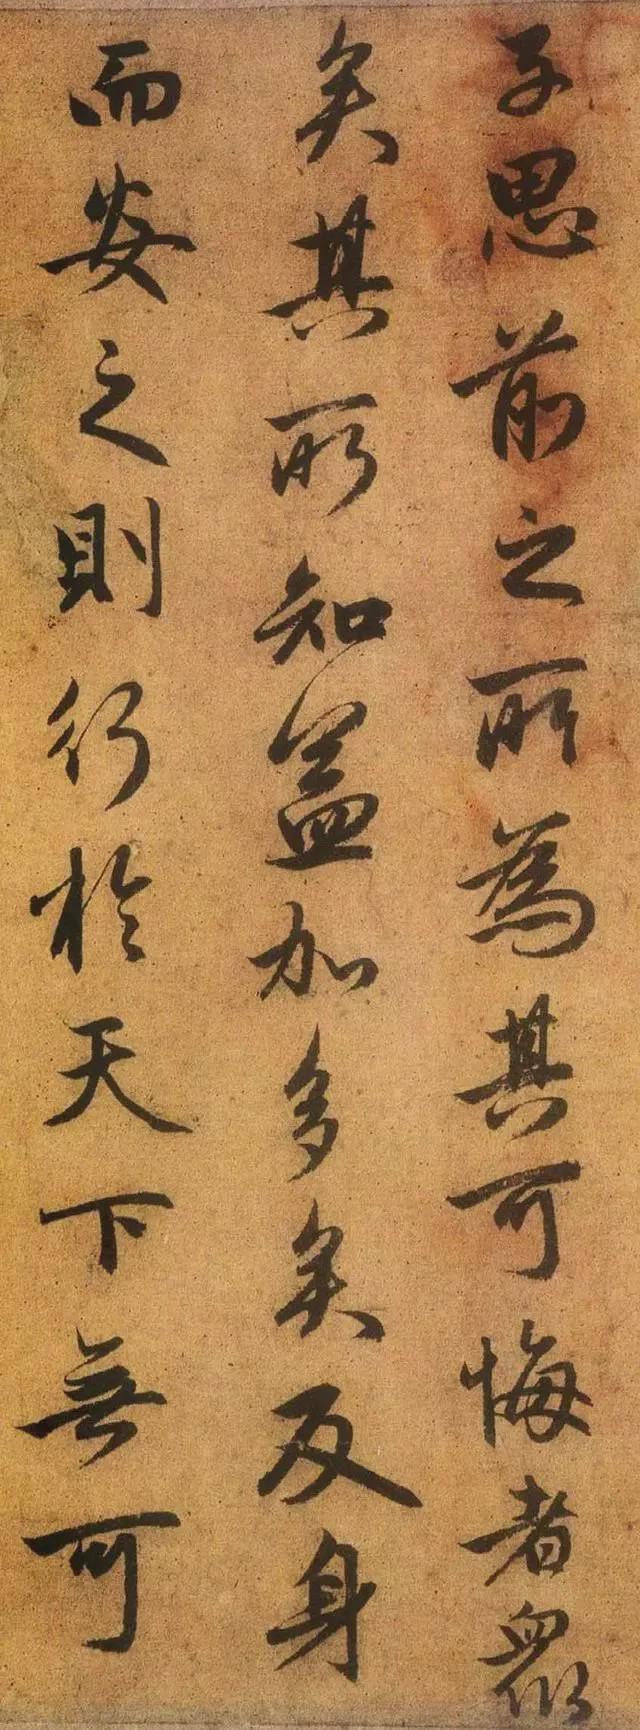 子思前之所為其可悔者眾
矣其所知益加多矣反身
而安之則行於天下無可